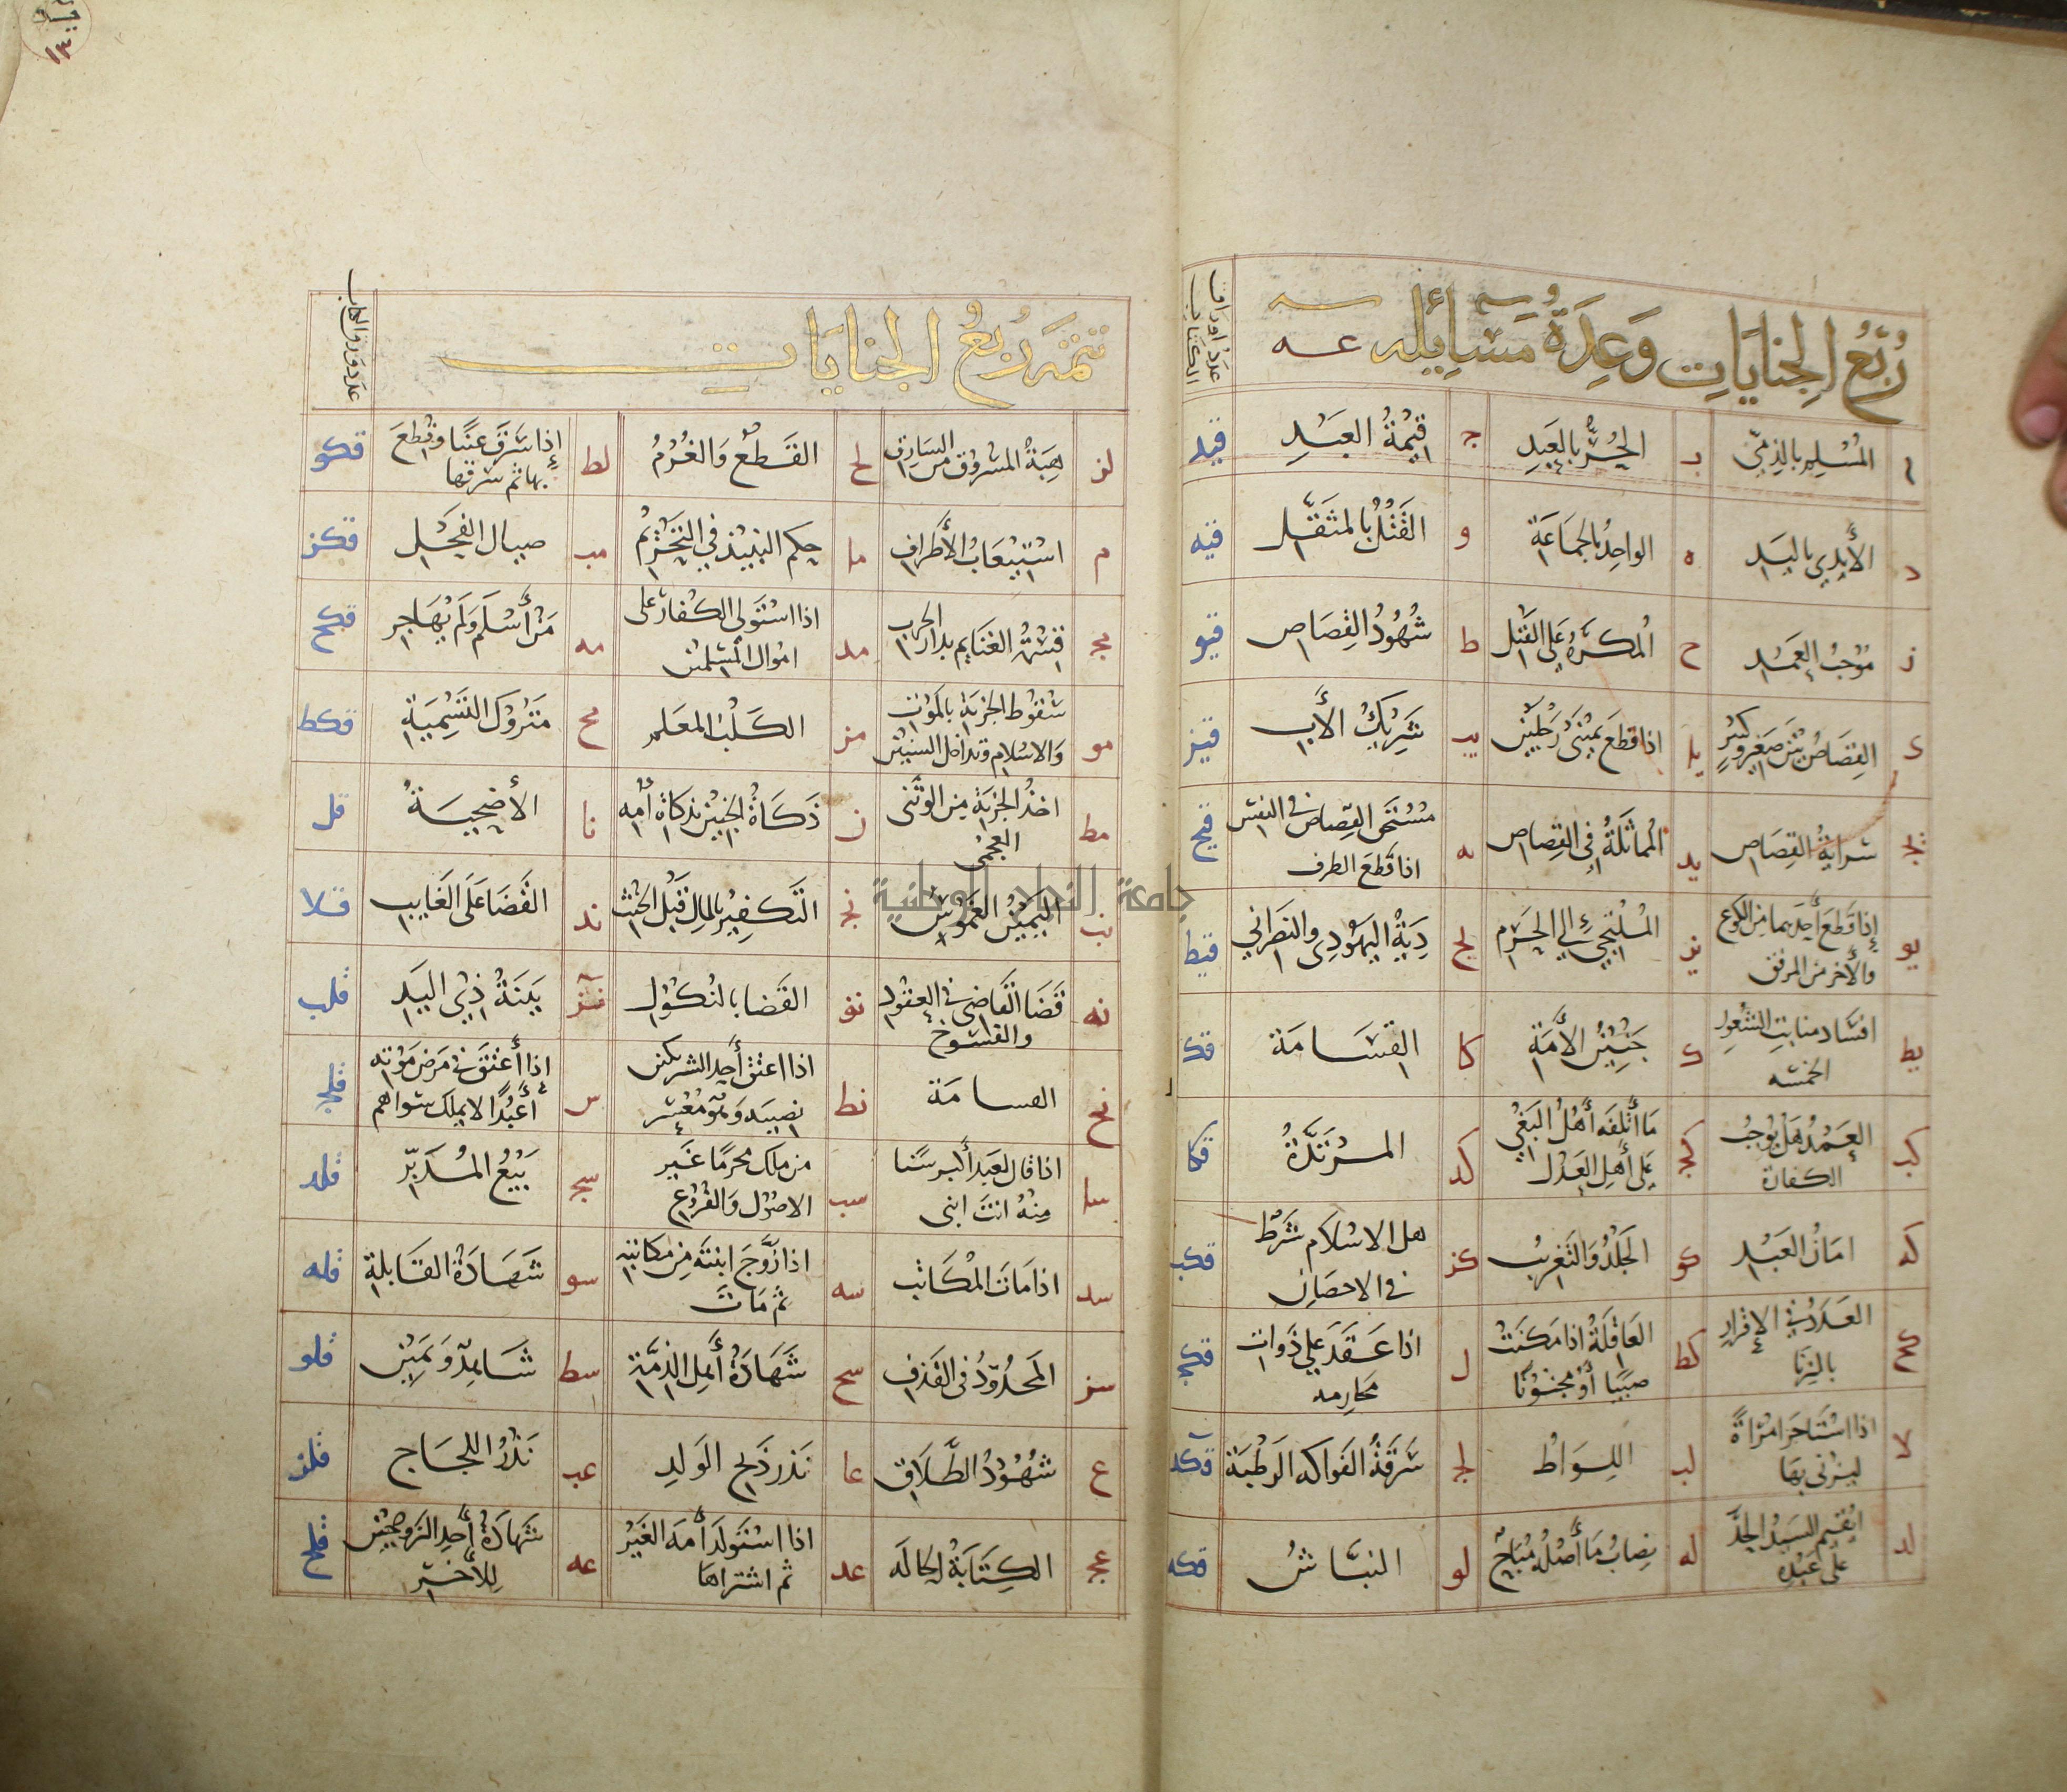 رُبْعُ الجِنايَاتِ وَعِدَّةُ مَسَائِلِه عه
عدد اوراق
الكتاب
ا المُسْلِم بالذِمّي ب الحُرُّ بالعَبدِ ج قيمَةُ العَبْدِ قيد
د الأَيدي باليَد ه الواحِدُ بالجمَاعَة و القَتْلُ بالمثقَّل قيه
ز مَوْجبُ العَمْد ح المُكرَه عَلى القَتْل ط شُهُودُ القِصَاص قيو
ى القِصَاصُ بَيْنَ صَغيرٍ وكبيرٍ يا اذا قطع يُمْنَى رَجُلَيْن يب شَرِيكُ الأَب قيز
يج سرايَةُ القِصَاص يد المُمَاثَلَةُ في القِصَاص يه مسْتَحق القِصَاص في النفس
اذا قَطع الطرف قيح
يو إذا قَطَعَ أَحَدهما من الكوع
والأخر من المرفق يز المُلْتَجِئُ إلى الحَرَم يح دِيَةُ اليهُودِى والنصراني قيط
يط افسَاد منابت الشعور
الخمسَه ك جَنِينُ الأَمَة كا القَسَامَة قك
كب العَمْدُ هَل يُوجبُ
الكفارة كج مَا أتْلفَه أَهْلُ البَغْي
عَلى أهلِ العَدْل كد المرْتَدَّةُ قكا
كه امَانُ العَبْد كو الجَلْدُ وَالتَغريبُ كز هل الاسْلام شَرْط
في الاحصَان قكب
كح العَدَدُ في الإقرَار
بالزِنَا كط العَاقِلَةُ اذا مَكنَتْ
صَبيًا أَوْ مجنُونًا ل اذا عَقَدَ عَلى ذَوات
محَارِمه قكج
لا اذا اسْتَاجَرَ امْرَاةً
ليزنى بِهَا لب اللِوَاطُ لج سَرقَةُ الفَواكه الرَطبَة قكد
لد ايُقيم السَيّدُ الحدَّ
عَلى عَبْدِه له نِصابُ مَا أَصْلُه مُبَاحٌ لو النبَّاشُ قكه
تتمَّة رُبْعُ الجنايَات
عدد ورق الكتاب
لز هِبَةُ المَسْروق من السَارِق لح القَطعُ وَالغُرْمُ لط إذا سَرقَ عَينًا وقُطعَ
بها ثم سَرقها قكو
م اسْتِيعَابُ الأَطراف ما حكم النبيْذ في التَحْرِيْم مب صيال الفَحْل قكز
مج قسْمَةُ الغنَايم بدار الحَرب مد اذا اسْتَولى الكُفار على
امْوَال المُسْلمين مه مَنْ أَسْلَمَ وَلَم يُهَاجر قكح
مو سُقُوط الجِزيَة بالمَوْت
وَالاسْلام وتداخل السنين مز الكَلْبُ المعَلم مح مَتْروكُ التَسْمِيَة قكط
مط اخذ الجِزيَة مِن الوثَنى
العجمى ن ذَكاةُ الجَنيْن بذكَاة أُمه نا الأضحِيَةُ قل
نب اليمِيْنُ الغَمُوسُ نج التَكفِيْرُ بالمال قَبْلَ الحِنْث ند القَضَا عَلى الغَايب قلا
نه قَضَا القَاضِى في العقود
والفسُوخ نو القضَا بالنُكُوْل نز بَيّنَةُ ذِي اليَد قلب
نح القسامَة نط اذا اعتق أَحد الشريكين
نصيبَه وَهُوَ مُعْسِر س إذا أَعْتَقَ في مَرَض مَوْتِه
أَعْبُدًا لا يملك سواهم قلج
سا اذا قال لعَبد أَكبر سِنًا
مِنْهُ انتَ ابنى سب من ملك محرمًا غير
الاصُوْل وَالفُروع سج بَيْعُ المُدَبّر قلد
سد اذا مَاتَ المُكَاتب سه اذا زَوَّجَ ابنتَه مِن مكاتبه
ثم مَاتَ سو شَهَادَةُ القَابلة قله
سز المَحدُوْدُ فى القَذف سح شَهَادَةُ أَهل الذِمَّة سط شَاهِدٌ وَيَمِيْن قلو
ع شُهُوْدُ الطَّلَاق عا نَذر ذَبح الوَلد عب نَذْرُ اللجَاج قلز
عج الكِتَابَةُ الحَالَه عد اذا اسْتَولَد أَمَة الغَيْر
ثم اشتراها عه شَهَادَةُ أَحد الزوجَيْن
للأخَر قلح
جامعة النجاح الوطنية